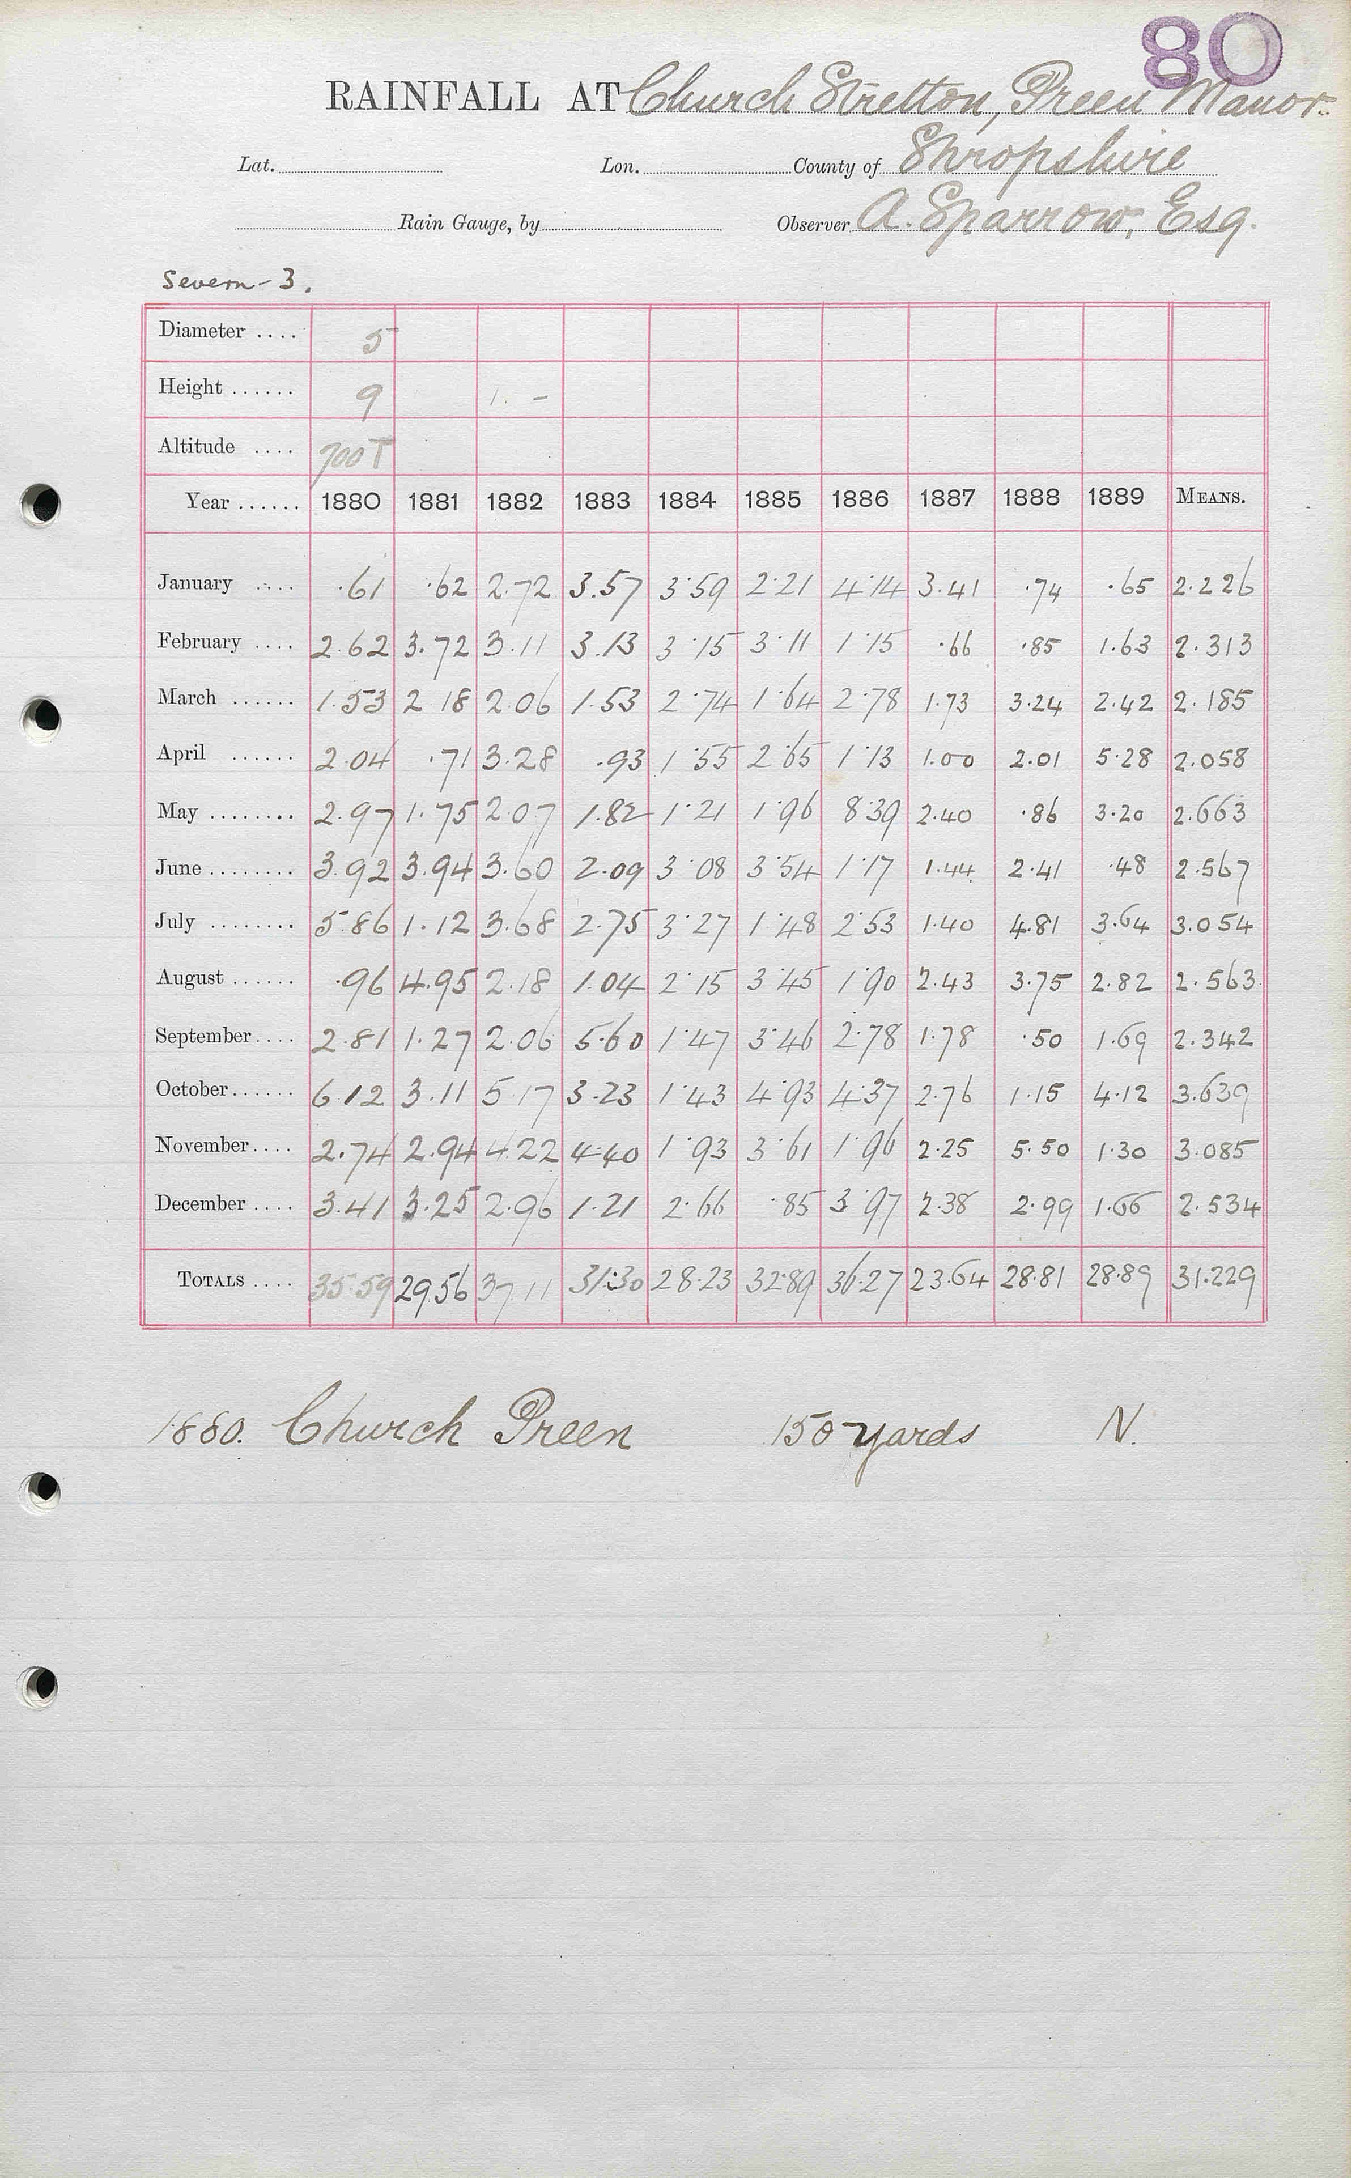 80
RAINFALL AT Church Stretton, Preen Manor.
Lat. Lon. County of Shropshire
Rain Gauge, by Observer A. Sparrow, Esq.
Severn - 3.
Diameter .... 5
Height ...... 9 1. -
Altitude .... 700 T
Year ...... 1880 1881 1882 1883 1884 1885 1886 1887 1888 1889 MEANS.
January .... .61 .62 2.72 3.57 3.59 2.21 4.14 3.41 .74 .65 2.226
February .... 2.62 3.72 3.11 3.13 3.15 3.11 1.15 .66 .85 1.63 2.313
March ...... 1.53 2 18 2.06 1.53 2.74 1.64 2.78 1.73 3.24 2.42 2.185
April ...... 2.04 .71 3.28 .93 1.55 2.65 1.13 1.00 2.01 5.28 2.058
May ........ 2.97 1.75 2.07 1.82 1.21 1.96 8.39 2.40 .86 3.20 2.663
June ........ 3.92 3.94 3.60 2.09 3.08 3.54 1.17 1.44 2.41 .48 2.567
July ........ 5.86 1.12 3.68 2.75 3.27 1.48 2.53 1.40 4.81 3.64 3.054
August ...... .96 4.95 2.18 1.04 2.15 3.45 1.90 2.43 3.75 2.82 2.563
September .... 2.81 1.27 2.06 5.60 1.47 3.46 2.78 1.78 .50 1.69 2.342
October ...... 6.12 3.11 5.17 3.23 1.43 4.93 4.37 2.76 1.15 4.12 3.639
November .... 2.74 2.94 4.22 4.40 1.93 3.61 1.96 2.25 5.50 1.30 3.085
December .... 3.41 3.25 2.96 1.21 2.66 .85 3.97 2.38 2.99 1.66 2.534
TOTALS .... 35.59 29.56 37.11 31.30 28.23 32.89 36.27 23.64 28.81 28.89 31.229
1880. Church Preen 150 yards N.